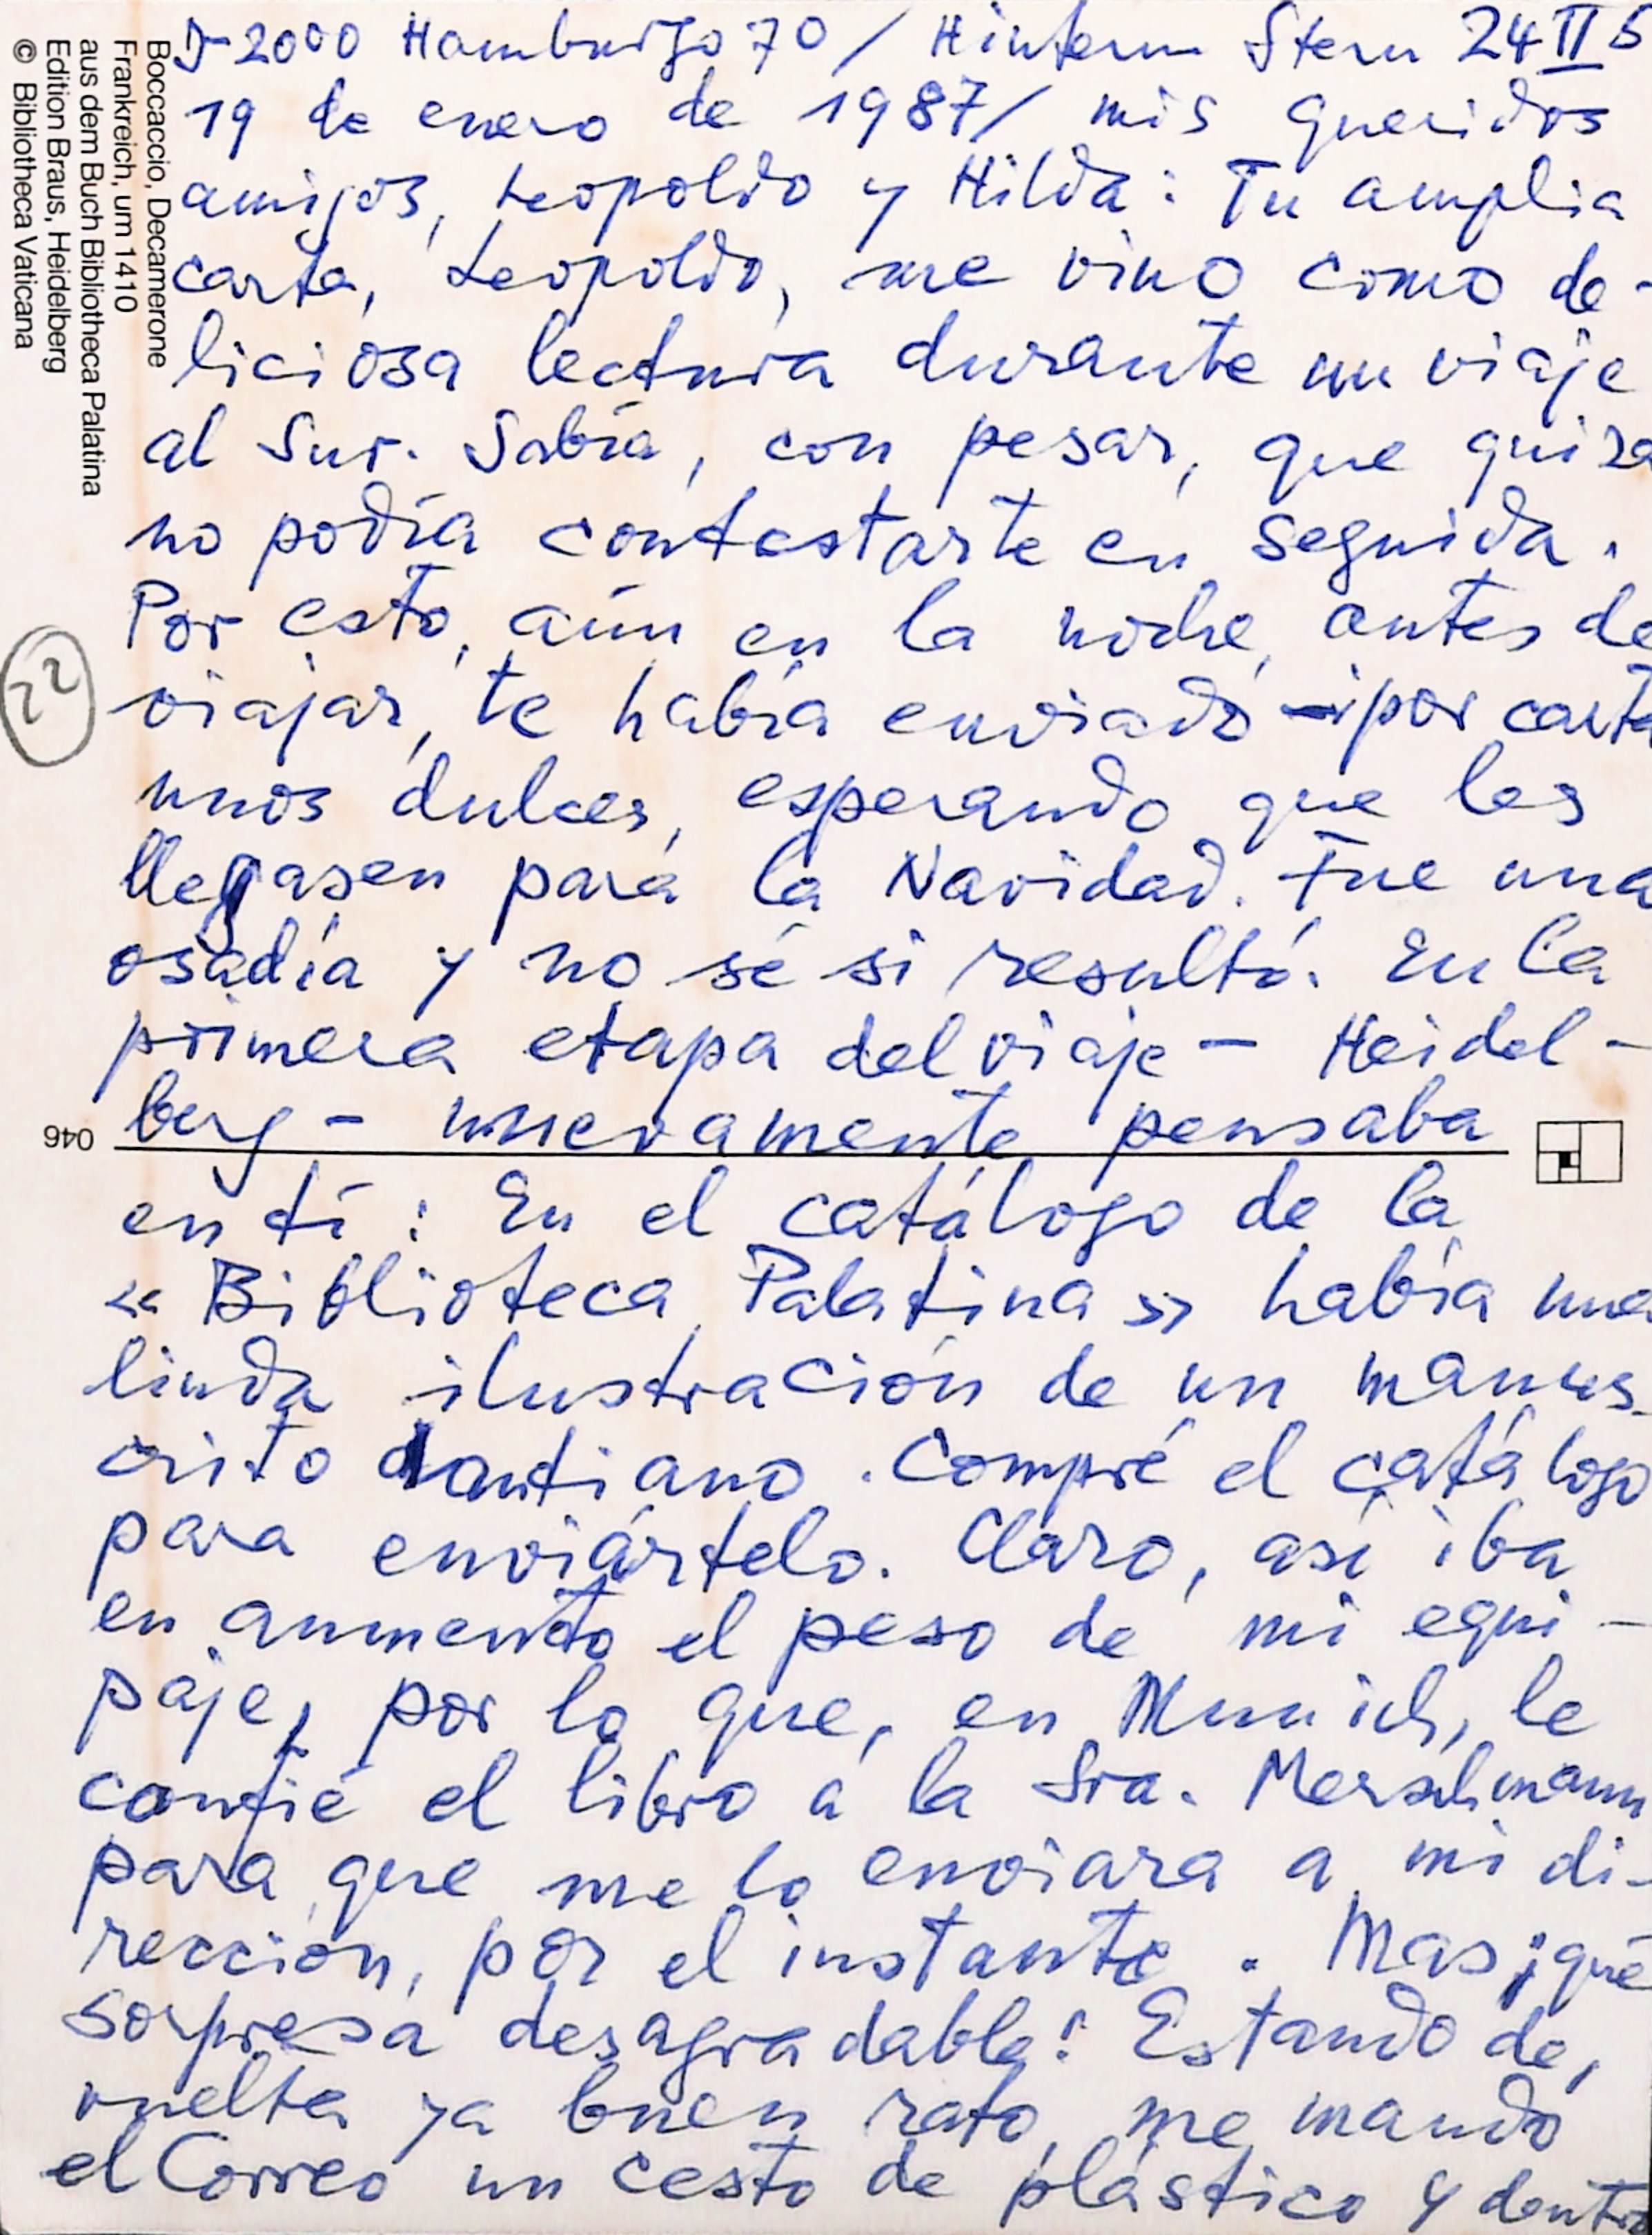 D-2000 Hamburgo 70 / Hinterm Stern 24 II B
19 de enero de 1987 / mis queridos
amigos, Leopoldo y Hilda: Tu amplia
carta, Leopoldo, me vino como de-
liciosa lectura durante un viaje
al Sur. Sabía, con pesar, que quiza
no podía contestarte en seguida.
Por esto, aún en la noche, antes de
viajar, te había enviado por carta
unos dulces, esperando que les
llegasen para la Navidad. Fue una
osadía y no sé si resultó. En la
primera etapa del viaje - Heidel-
berg - nuevamente pensaba
en tí: En el catálogo de la
« Biblioteca Palatina » había una
linda ilustración de un manus-
crito dantiano. Compré el catálogo
para enviártelo. Claro, así iba
en aumento el peso de mi equi-
paje, por lo que, en Munich, le
confié el libro a la Sra. Merschmann
para que me lo enviara a mi di-
rección, por el instante. Mas ¡qué
sorpresa desagradable! Estando de
vuelta ya buen rato, me mandó
el Correo un cesto de plástico y dentro
22
046
Boccaccio, Decamerone
Frankreich, um 1410
aus dem Buch Bibliotheca Palatina
Edition Braus, Heidelberg
© Bibliotheca Vaticana